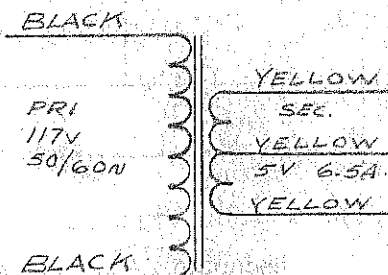 BLACK
PRI
117V
50/60N
BLACK
YELLOW
SEC.
YELLOW
5V 6.5A.
YELLOW